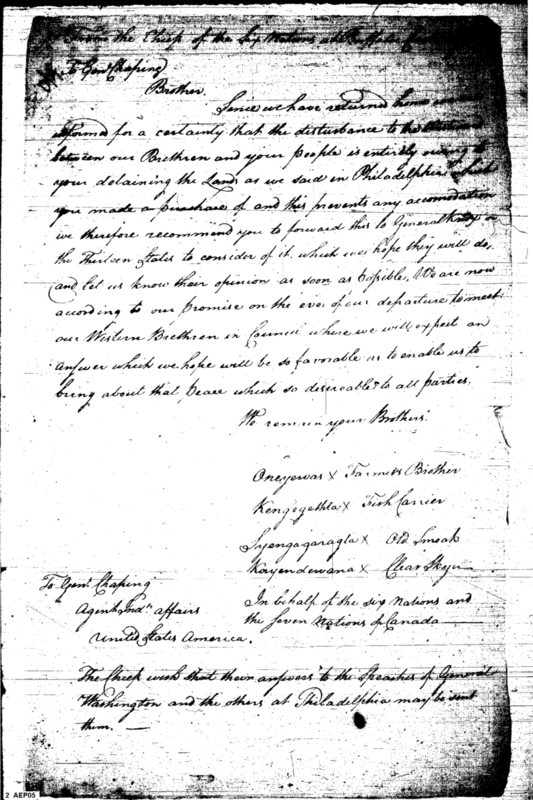 From the Chiefs of the Six Nations at Buffaloe
To Genl. Chaping
Brother.
Since we have returned home
informed for a certainty that the disturbance to the
between our Brethren and your People is entirely owing to
your detaining the Lands as we said in Philadelphia which
you made a purchase of and this prevents any acomodation
we therefore recommend you to forward this to General Knox or
the Thirteen States to consider of it, which we hope they will do,
and let us know their opinion as soon as Possible. We are now
according to our promise on the eve of our departure to meet
our Western Brethren in Council where we will expect an
answer which we hope will be so favorable as to enable us to
bring about that Peace which so desireable to all parties.
We remain your Brothers
Oneyewas X Farmers Brother
Kengegethta X Fish Carrier
Syengagaragta X Old Smoak
Kayendewana X Clear Skeyn
To Genl. Chaping
Agent Indn. affairs
United States America.
In behalf of the six Nations and
the Seven Nations of Canada
The Chiefs wish that their answers to the Speaches of General
Washington and the others at Philadelphia may be sent
them. —
2 AEP05